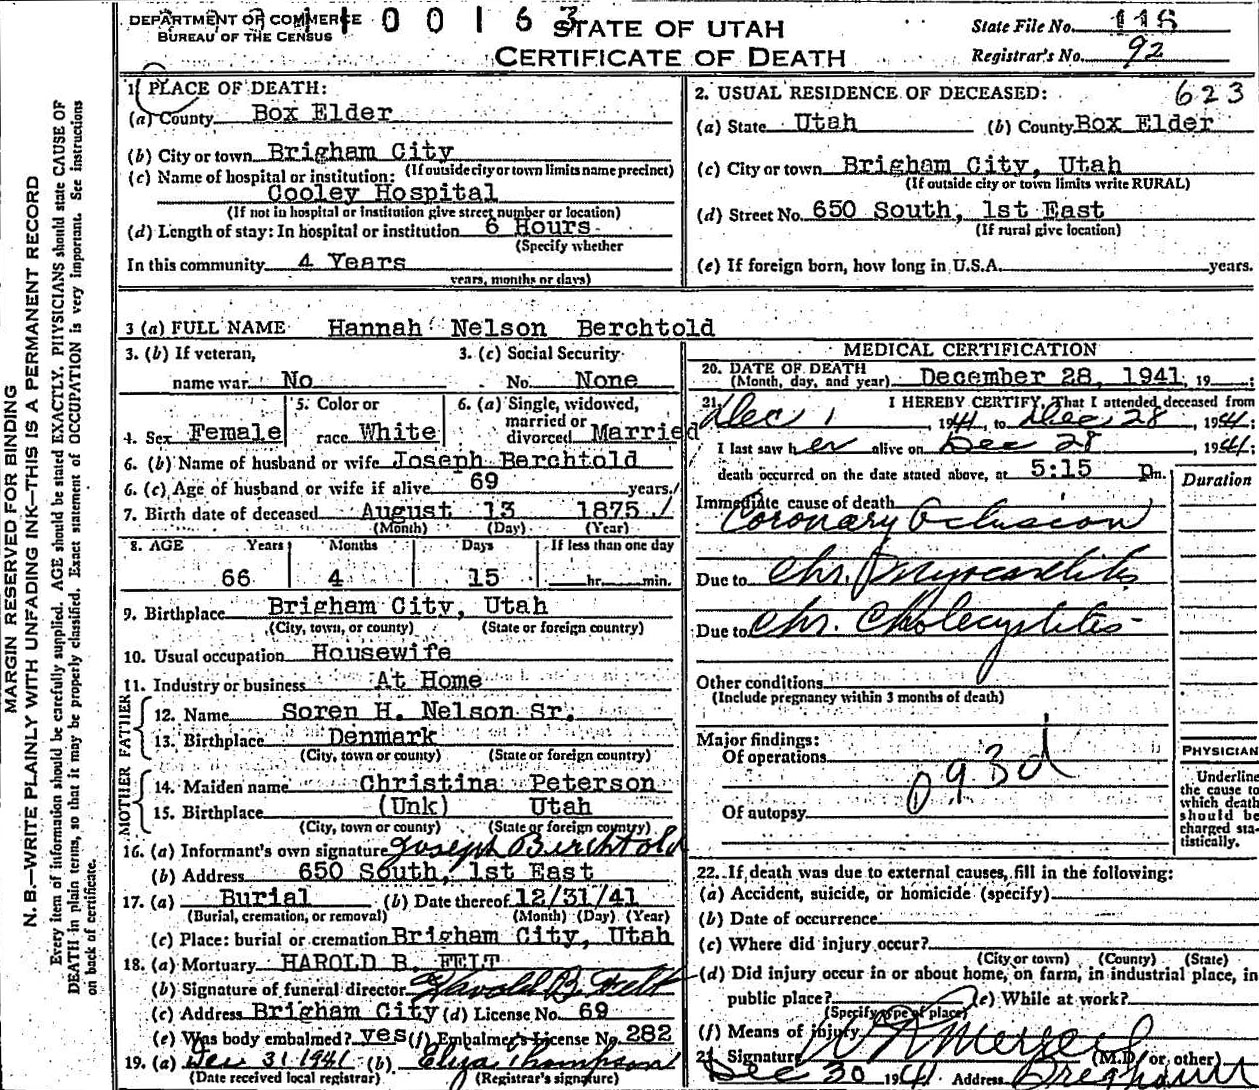 DEPARTMENT OF COMMERCE
BUREAU OF THE CENSUS
1 0 0 1 6 3
STATE OF UTAH
CERTIFICATE OF DEATH
State File No. 116
Registrar's No. 92
MARGIN RESERVED FOR BINDING
N. B.—WRITE PLAINLY WITH UNFADING INK—THIS IS A PERMANENT RECORD
Every item of information should be carefully supplied. AGE should be stated EXACTLY, PHYSICIANS should state CAUSE OF
DEATH in plain terms, so that it may be properly classified. Exact statement of OCCUPATION is very important. See instructions
on back of certificate.
1. PLACE OF DEATH:
(a) County Box Elder
(b) City or town Brigham City
(If outside city or town limits name precinct)
(c) Name of hospital or institution:
Cooley Hospital
(If not in hospital or institution give street number or location)
(d) Length of stay: In hospital or institution 6 Hours
(Specify whether
In this community 4 Years
years, months or days)
2. USUAL RESIDENCE OF DECEASED: 623
(a) State Utah (b) County Box Elder
(c) City or town Brigham City, Utah
(If outside city or town limits write RURAL)
(d) Street No. 650 South, 1st East
(If rural give location)
(e) If foreign born, how long in U.S.A. years.
3 (a) FULL NAME Hannah Nelson Berchtold
3. (b) If veteran, name war No
3. (c) Social Security No. None
4. Sex Female
5. Color or race White
6. (a) Single, widowed, married or divorced Married
6. (b) Name of husband or wife Joseph Berchtold
6. (c) Age of husband or wife if alive 69 years.
7. Birth date of deceased August 13 1875
(Month) (Day) (Year)
8. AGE Years Months Days If less than one day
66 4 15 hr. min.
9. Birthplace Brigham City, Utah
(City, town, or county) (State or foreign country)
10. Usual occupation Housewife
11. Industry or business At Home
FATHER
12. Name Soren H. Nelson Sr.
13. Birthplace Denmark
(City, town or county) (State or foreign country)
MOTHER
14. Maiden name Christina Peterson
15. Birthplace (Unk) Utah
(City, town or county) (State or foreign country)
16. (a) Informant's own signature Joseph Berchtold
(b) Address 650 South, 1st East
17. (a) Burial (b) Date thereof 12/31/41
(Burial, cremation, or removal) (Month) (Day) (Year)
(c) Place: burial or cremation Brigham City, Utah
18. (a) Mortuary HAROLD B. FELT
(b) Signature of funeral director Harold B. Felt
(c) Address Brigham City (d) License No. 69
(e) Was body embalmed? yes (f) Embalmer's License No. 282
19. (a) Dec 31 1941 (b) Eliza Thompson
(Date received local registrar) (Registrar's signature)
MEDICAL CERTIFICATION
20. DATE OF DEATH
(Month, day, and year) December 28, 1941, 19 ;
21. I HEREBY CERTIFY, That I attended deceased from
Dec 1, 1941, to Dec 28, 1941;
I last saw her alive on Dec 28, 1941;
death occurred on the date stated above, at 5:15 pm.
Duration
Immediate cause of death
Coronary Oclusion
Due to Chr. Myocarditis
Due to Chr. Cholecystitis
Other conditions
(Include pregnancy within 3 months of death)
Major findings:
Of operations
093d
Of autopsy
PHYSICIAN
Underline
the cause to
which death
should be
charged sta-
tistically.
22. If death was due to external causes, fill in the following:
(a) Accident, suicide, or homicide (specify)
(b) Date of occurrence
(c) Where did injury occur?
(City or town) (County) (State)
(d) Did injury occur in or about home, on farm, in industrial place, in
public place? (e) While at work?
(Specify type of place)
(f) Means of injury
Signature (M.D. or other)
Dec 30 1941 Address Brigham